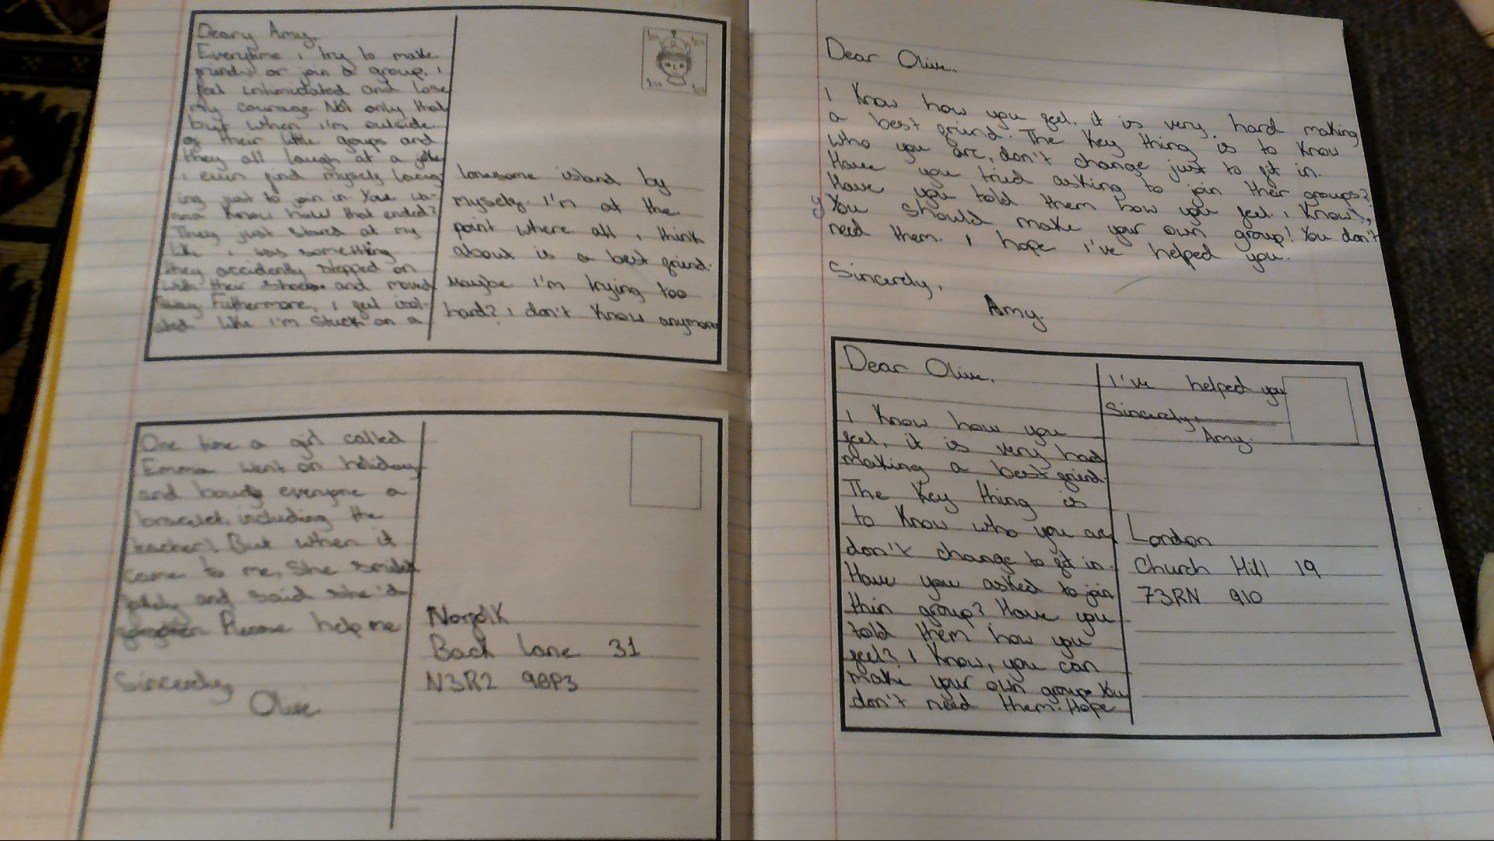 Deary Amy.
Everytime i try to make
friends or join a group, i
feel intimidated and lose
my courage. Not only that
but when i'm outside
of their little groups and
they all laugh at a joke
i even find myself
ing just to join in. You wa-
nna know how that ended?
They just stared at my
like i was something
they accidently stepped on
with their shoes and moved
away. Futhermore, i feel isol-
ated like i'm stuck on a
lonesome island by
myself. I'm at the
point where all i think
about is a best friend.
Maybe i'm trying too
hard? i don't know anymore
One time a girl called
Emma went on holiday
and everyone a
bracelet, including the
teacher! But when it
came to me, She smiled
and said she'd
Please help me
Sincerely
Olive
Norfolk
Back lane 31
N3R2 98P3
Dear Olive.
I know how you feel, it is very hard making
a best friend. The key thing is to know
who you are, don't change just to fit in.
Have you tried asking to join their groups?
Have you told them how you feel. i know?,
You should make your own group! You don't
need them. I hope i've helped you.
Sincerly,
Amy.
Dear Olive.
I know how you
feel, it is very hard
making a best friend
The key thing is
to know who you are
don't change to fit in.
Have you asked to join
thin group? Have you
told them how you
feel? i know, you can
make your own group. You
don't need them. Hope
I've helped you
Sincerely,
Amy.
London
Church Hill 19
73RN 910